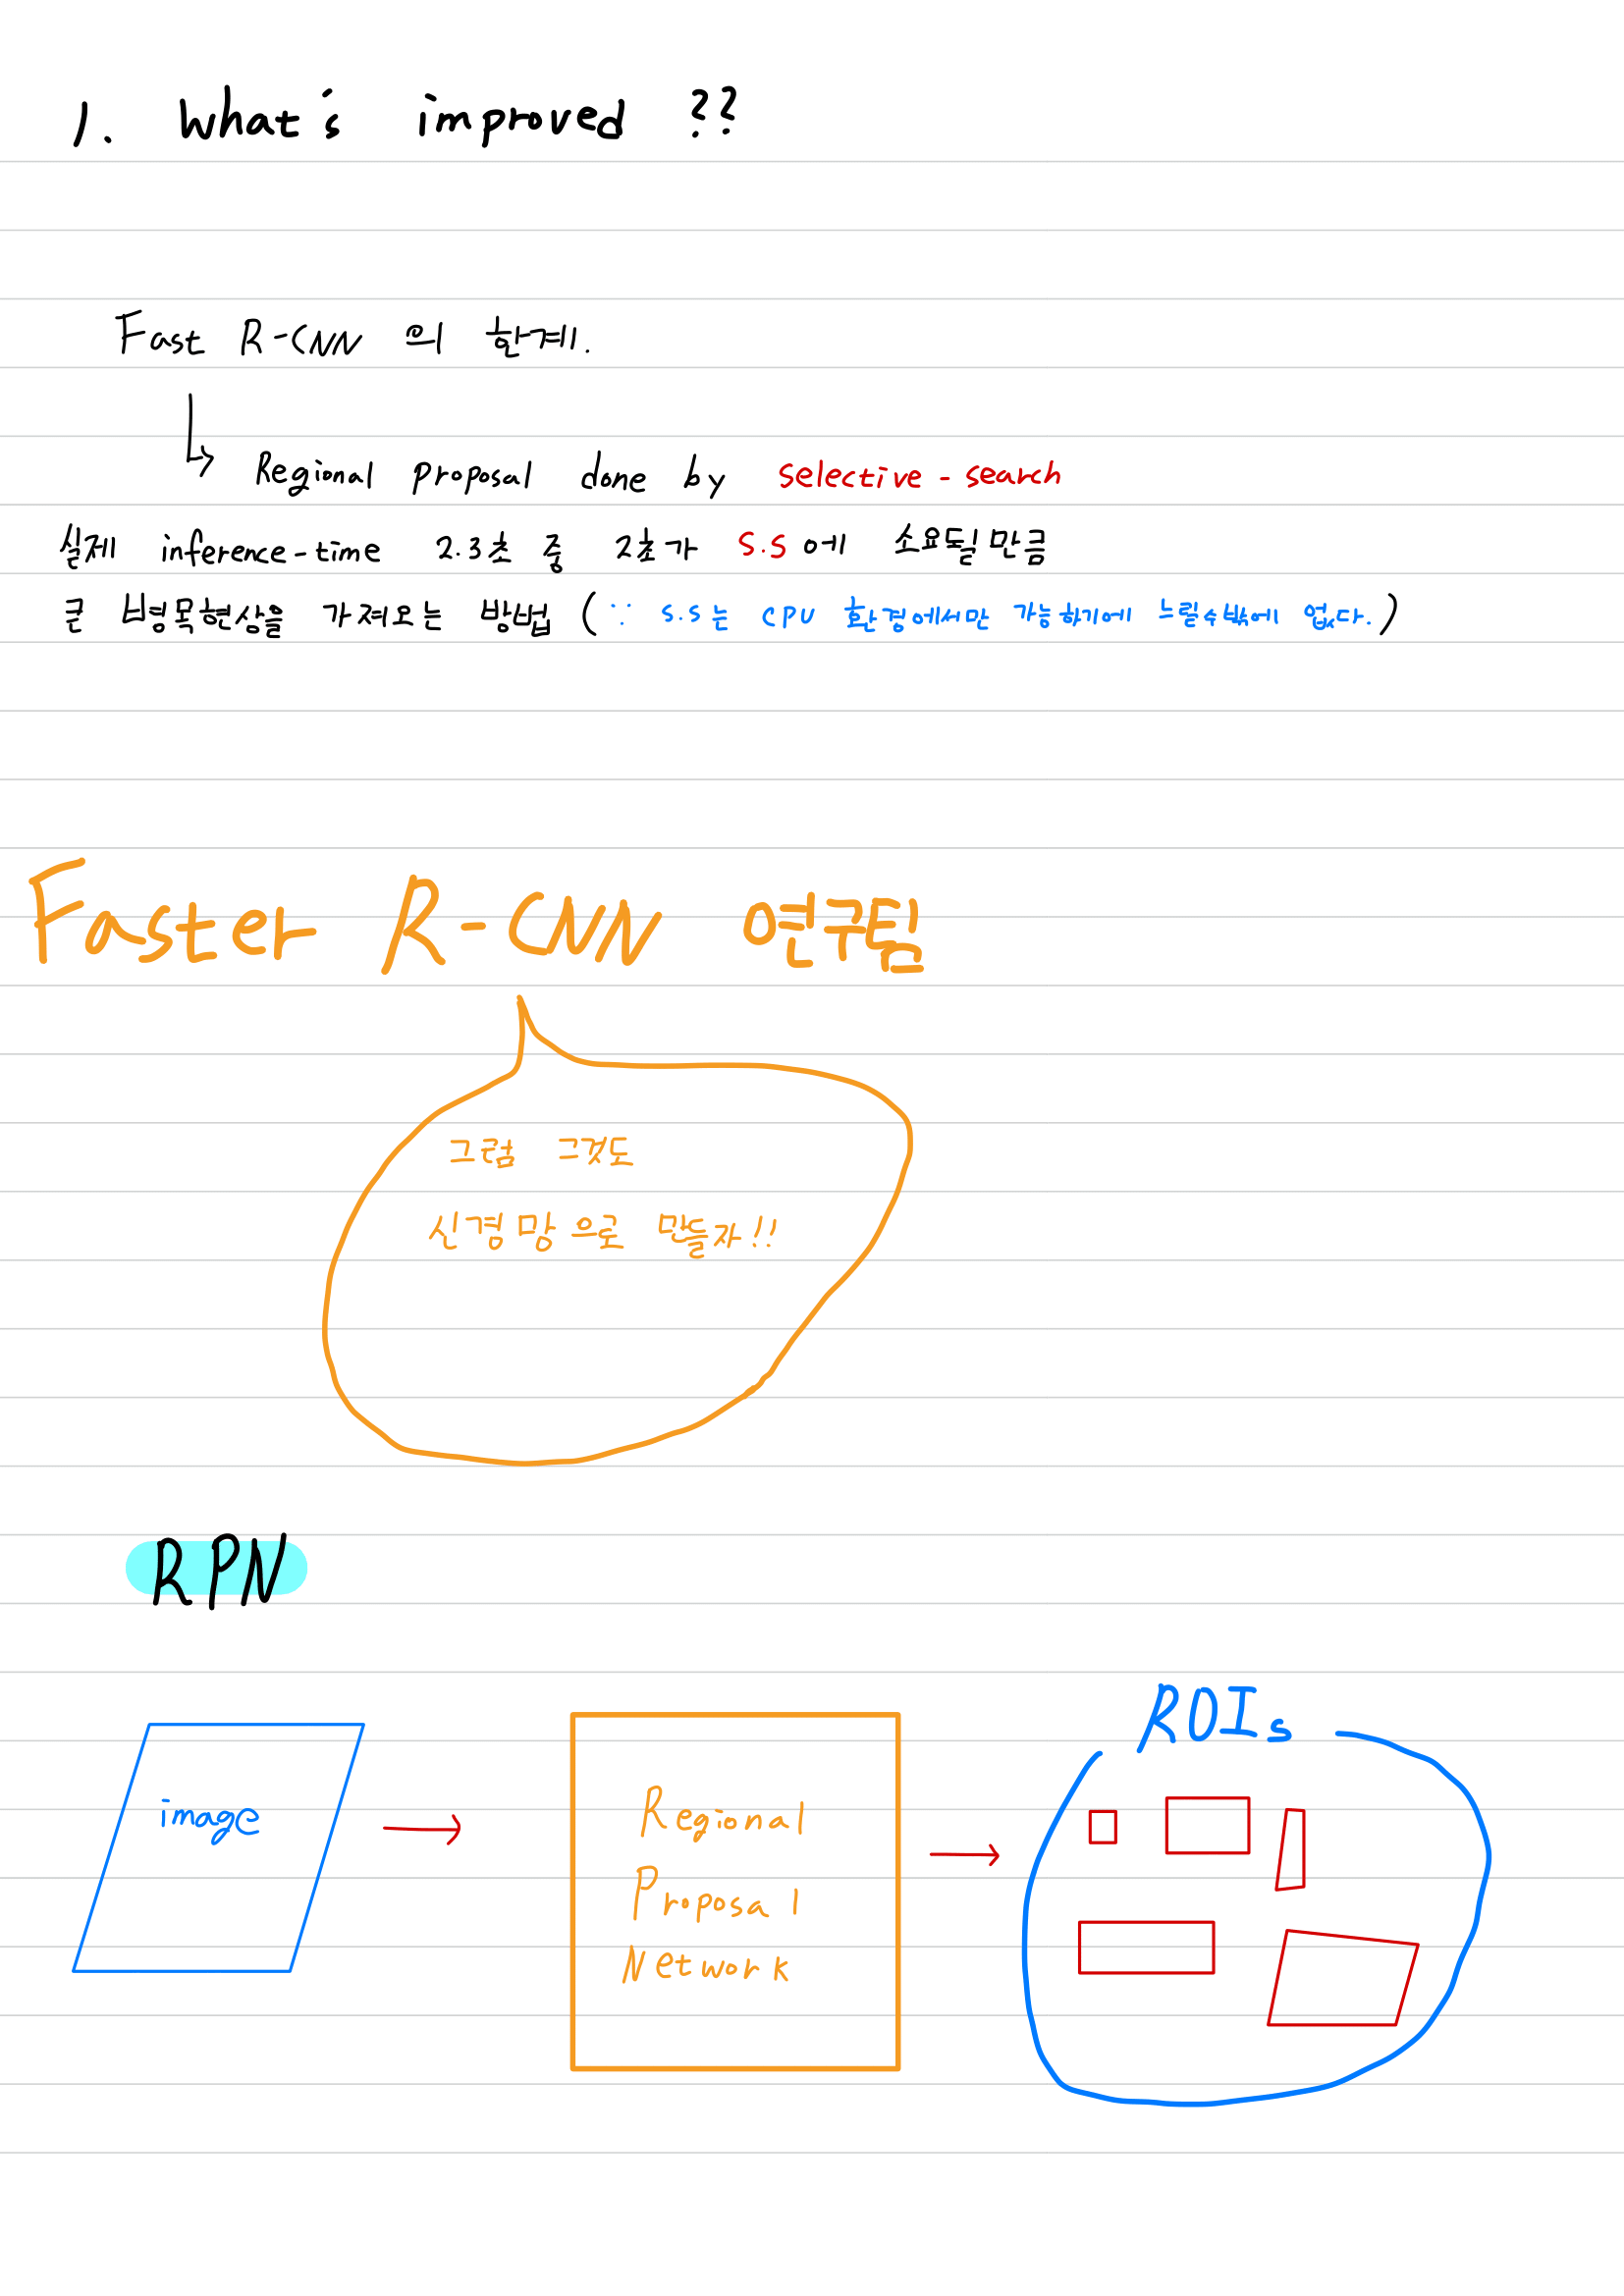 1. What's improved ??
Fast R-CNN 의 한계.
Regional proposal done by selective-search
실제 inference-time 2.3초 중 2초가 S.S에 소요될만큼
큰 병목현상을 가져오는 방법 (∵ S.S는 CPU 환경에서만 가능하기에 느릴수밖에 없다.)
Faster R-CNN 연구팀
그럼 그것도
신경망으로 만들자!!
RPN
ROIs
image
Regional
Proposal
Network